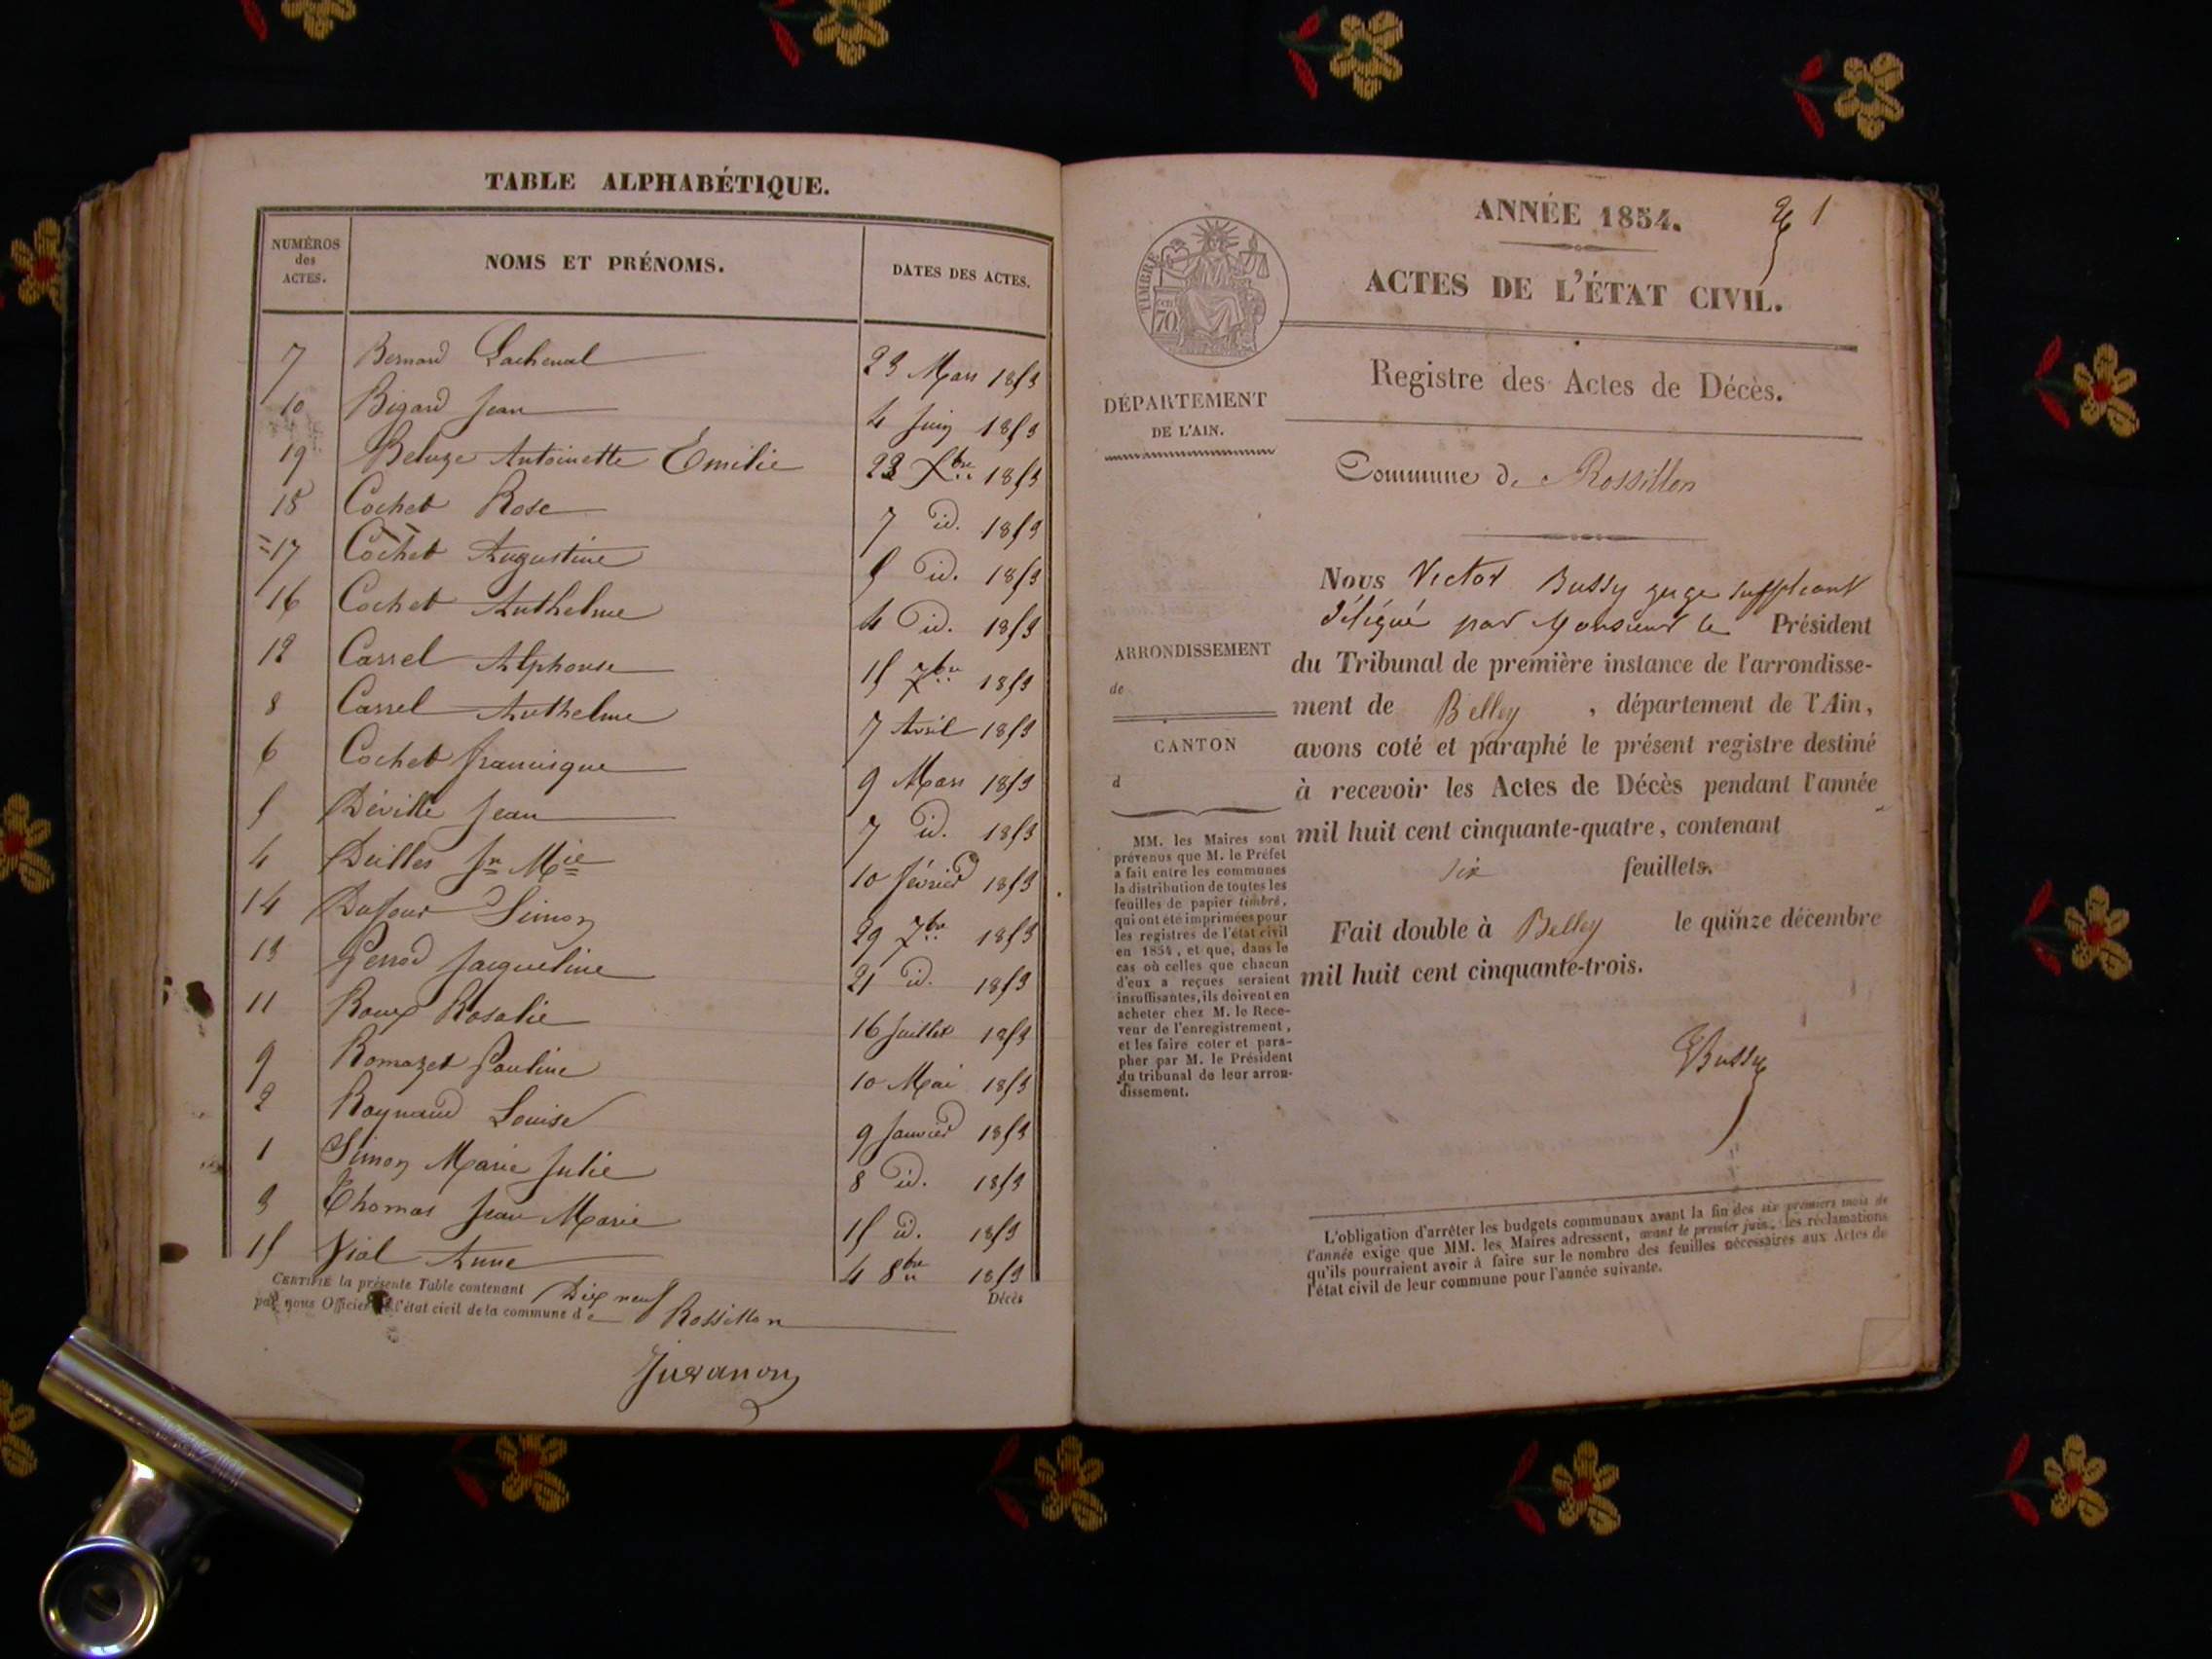 TABLE ALPHABÉTIQUE.
NUMÉROS
des
ACTES.
NOMS ET PRÉNOMS.
DATES DES ACTES.
7 Bernard Lachenal 23 Mars 1853
10 Bigard Jean 4 Juin 1853
19 Beluze Antoinette Emilie 23 Xbre 1853
18 Cochet Rose 7 id. 1853
17 Cochet Augustine 5 id. 1853
16 Cochet Anthelme 4 id. 1853
12 Carrel Alphonse 15 7bre 1853
8 Carrel Anthelme 7 Avril 1853
6 Cochet Francisque 9 Mars 1853
5 Déville Jean 7 id. 1853
4 Duilles Jn Mie 10 février 1853
14 Dufour Simon 29 7bre 1853
13 Perrod Jacqueline 21 id. 1853
11 Roux Rosalie 16 Juillet 1853
9 Romazet Pauline 10 Mai 1853
2 Raynaud Louise 9 Janvier 1853
1 Simon Marie Julie 8 id. 1853
3 Thomas Jean Marie 15 id. 1853
15 Vial Anne 4 8bre 1853
CERTIFIÉ la présente Table contenant Dix neuf Décès
par nous Officier de l'état civil de la commune de Rossillon
Juvanon
ANNÉE 1854. 1
ACTES DE L'ÉTAT CIVIL.
TIMBRE
70
cen
Registre des Actes de Décès.
DÉPARTEMENT
DE L'AIN.
Commune de Rossillon
ARRONDISSEMENT
de
CANTON
d
MM. les Maires sont
prévenus que M. le Préfet
a fait entre les communes
la distribution de toutes les
feuilles de papier timbré,
qui ont été imprimées pour
les registres de l'état civil
en 1854, et que, dans le
cas où celles que chacun
d'eux a reçues seraient
insuffisantes, ils doivent en
acheter chez M. le Rece-
veur de l'enregistrement,
et les faire coter et para-
pher par M. le Président
du tribunal de leur arron-
dissement.
Nous Victor Bussy juge suppléant
délégué par Monsieur le Président
du Tribunal de première instance de l'arrondisse-
ment de Belley , département de l'Ain,
avons coté et paraphé le présent registre destiné
à recevoir les Actes de Décès pendant l'année
mil huit cent cinquante-quatre, contenant
six feuillets.
Fait double à Belley le quinze décembre
mil huit cent cinquante-trois.
VBussy
L'obligation d'arrêter les budgets communaux avant la fin des six premiers mois de
l'année exige que MM. les Maires adressent, avant le premier juin, les réclamations
qu'ils pourraient avoir à faire sur le nombre des feuilles nécessaires aux Actes de
l'état civil de leur commune pour l'année suivante.